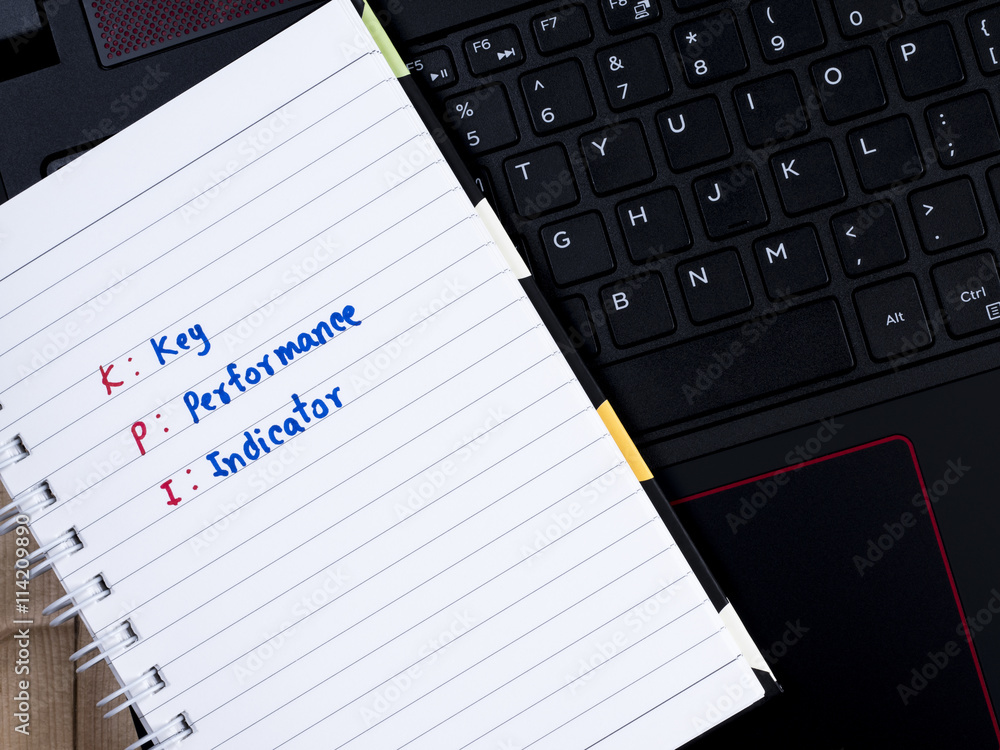 K: Key
P: Performance
I: Indicator
F5
F6
F7
F8
%
5
^
6
&
7
*
8
(
9
)
0
T
Y
U
I
O
P
{
[
G
H
J
K
L
:
;
B
N
M
<
,
>
.
Alt
Ctrl
Adobe Stock | #114209890
Adobe Stock